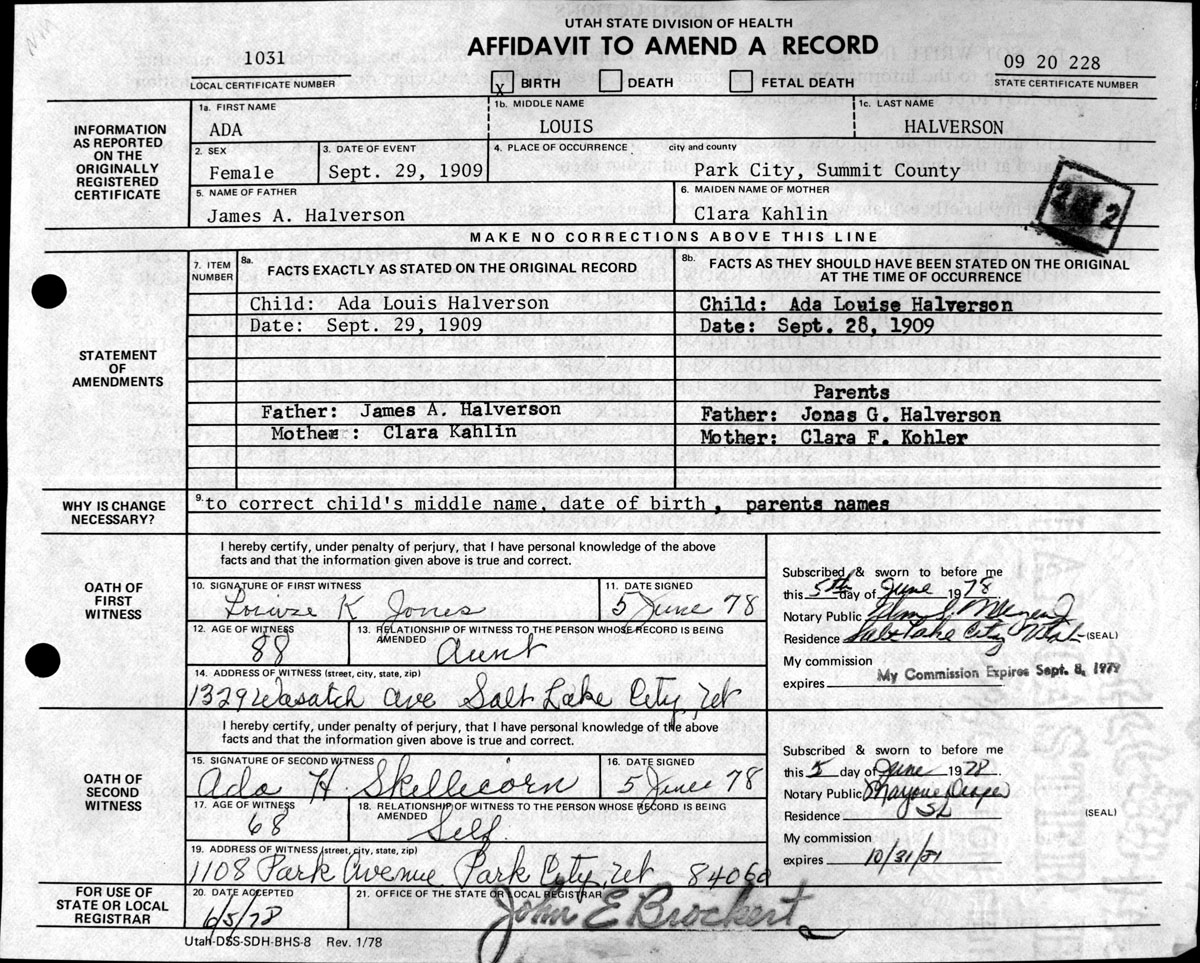 UTAH STATE DIVISION OF HEALTH
AFFIDAVIT TO AMEND A RECORD
1031
LOCAL CERTIFICATE NUMBER
X BIRTH DEATH FETAL DEATH
09 20 228
STATE CERTIFICATE NUMBER
INFORMATION AS REPORTED ON THE ORIGINALLY REGISTERED CERTIFICATE
1a. FIRST NAME 1b. MIDDLE NAME 1c. LAST NAME
ADA LOUIS HALVERSON
2. SEX 3. DATE OF EVENT 4. PLACE OF OCCURRENCE city and county
Female Sept. 29, 1909 Park City, Summit County
5. NAME OF FATHER 6. MAIDEN NAME OF MOTHER
James A. Halverson Clara Kahlin
MAKE NO CORRECTIONS ABOVE THIS LINE
STATEMENT OF AMENDMENTS
7. ITEM NUMBER
8a. FACTS EXACTLY AS STATED ON THE ORIGINAL RECORD
8b. FACTS AS THEY SHOULD HAVE BEEN STATED ON THE ORIGINAL AT THE TIME OF OCCURRENCE
Child: Ada Louis Halverson Child: Ada Louise Halverson
Date: Sept. 29, 1909 Date: Sept. 28, 1909
Parents
Father: James A. Halverson Father: Jonas G. Halverson
Mother : Clara Kahlin Mother: Clara F. Kohler
WHY IS CHANGE NECESSARY?
9. to correct child's middle name, date of birth, parents names
OATH OF FIRST WITNESS
I hereby certify, under penalty of perjury, that I have personal knowledge of the above
facts and that the information given above is true and correct.
10. SIGNATURE OF FIRST WITNESS 11. DATE SIGNED
Louize K Jones 5 June 78
12. AGE OF WITNESS 13. RELATIONSHIP OF WITNESS TO THE PERSON WHOSE RECORD IS BEING AMENDED
88 Aunt
14. ADDRESS OF WITNESS (street, city, state, zip)
1329 Wasatch Ave Salt Lake City, Ut
Subscribed & sworn to before me
this 5th day of June 1978.
Notary Public
Residence Salt Lake City Utah (SEAL)
My commission
expires My Commission Expires Sept. 8, 1979
OATH OF SECOND WITNESS
I hereby certify, under penalty of perjury, that I have personal knowledge of the above
facts and that the information given above is true and correct.
15. SIGNATURE OF SECOND WITNESS 16. DATE SIGNED
Ada H. Skellicorn 5 June 78
17. AGE OF WITNESS 18. RELATIONSHIP OF WITNESS TO THE PERSON WHOSE RECORD IS BEING AMENDED
68 Self.
19. ADDRESS OF WITNESS (street, city, state, zip)
1108 Park Avenue Park City, Ut 84060
Subscribed & sworn to before me
this 5 day of June 1978.
Notary Public
Residence SL (SEAL)
My commission
expires 10/31/81
FOR USE OF STATE OR LOCAL REGISTRAR
20. DATE ACCEPTED 21. OFFICE OF THE STATE OR LOCAL REGISTRAR
6/5/78 John E Brockert
Utah-DSS-SDH-BHS-8 Rev. 1/78